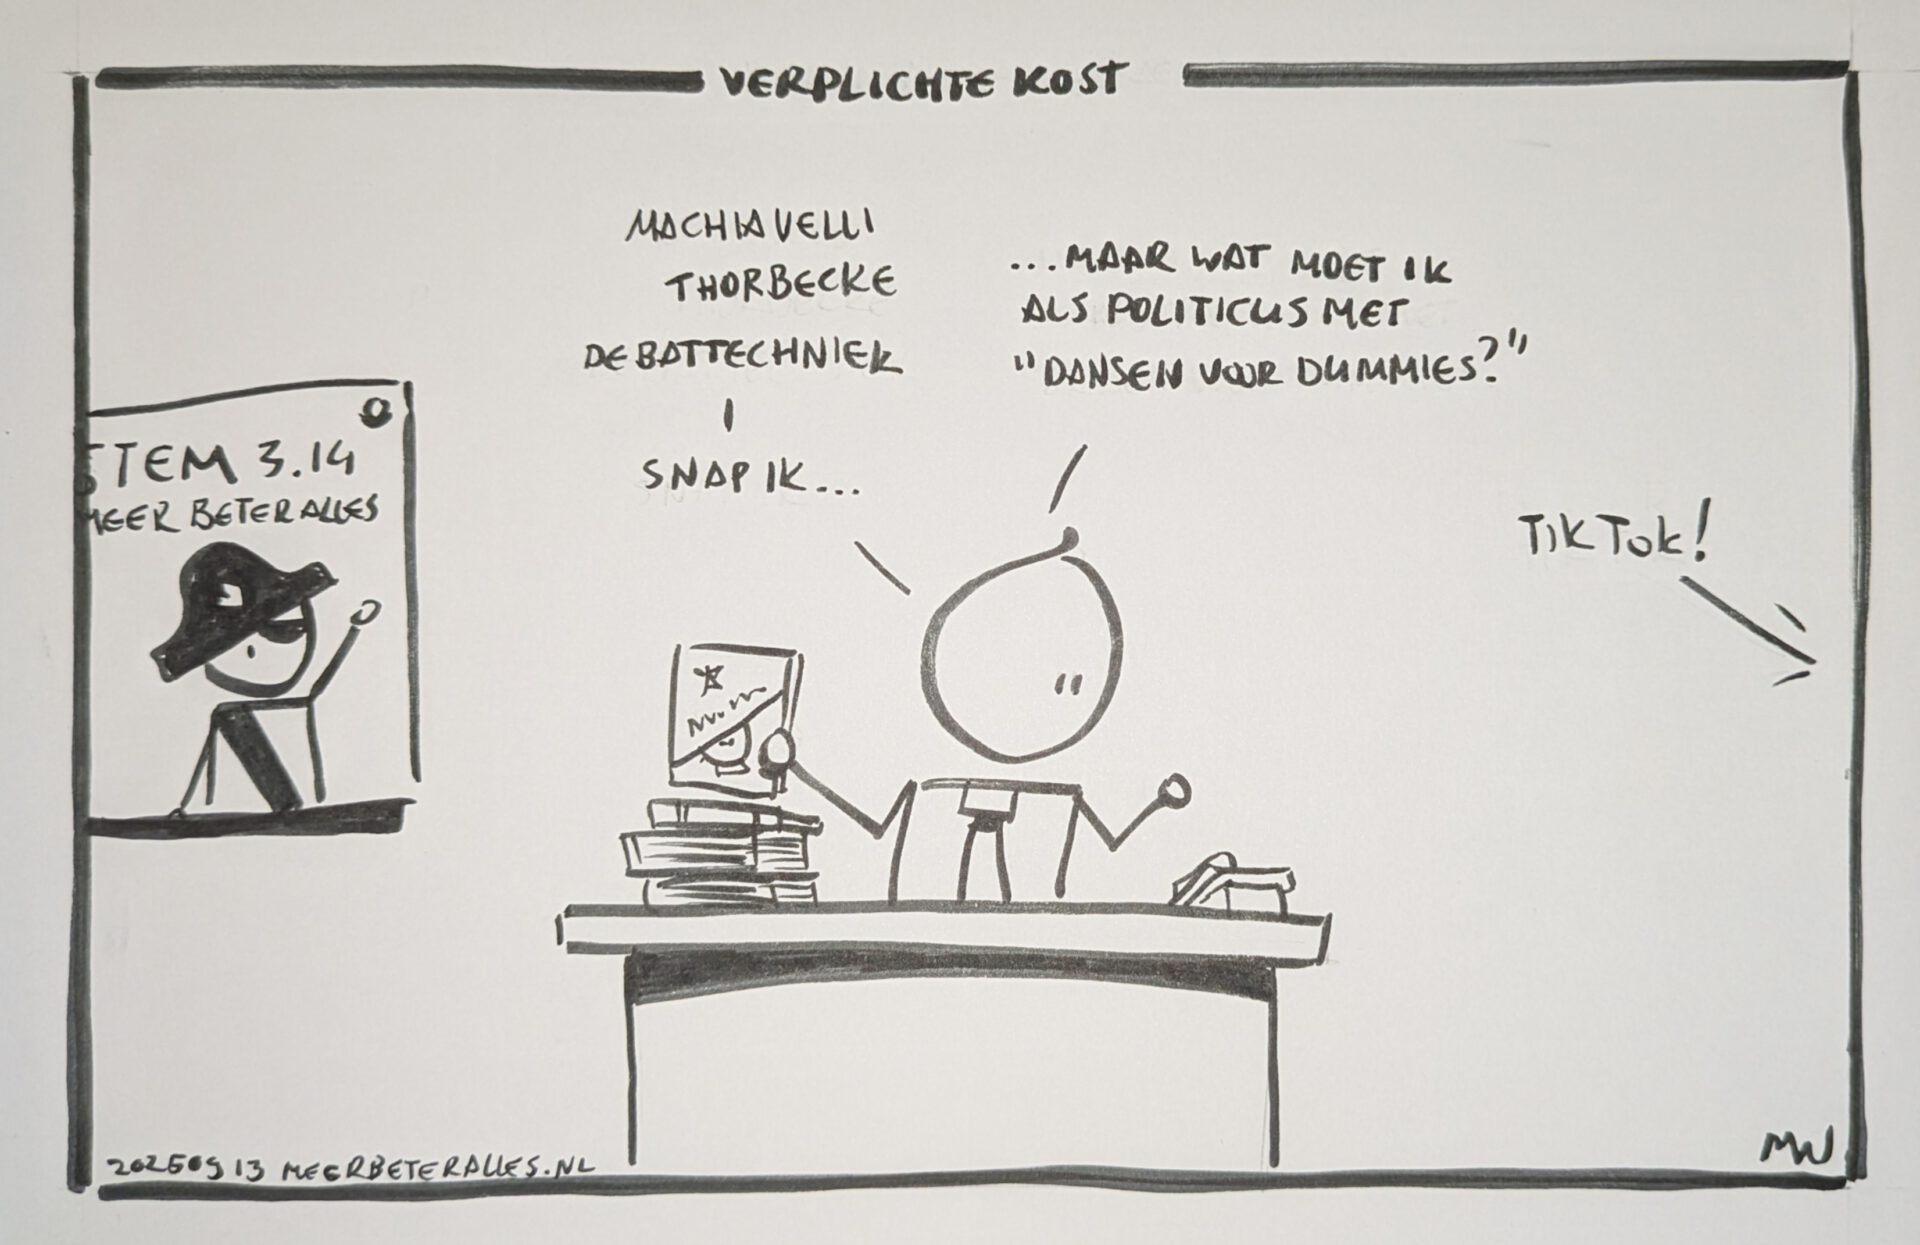 VERPLICHTE KOST
MACHIAVELLI
THORBECKE
DEBATTECHNIEK
SNAP IK...
...MAAR WAT MOET IK
ALS POLITICUS MET
"DANSEN VOOR DUMMIES?"
TIKTOK!
STEM 3.14
MEER BETER ALLES
20250913 MEERBETERALLES.NL
MW